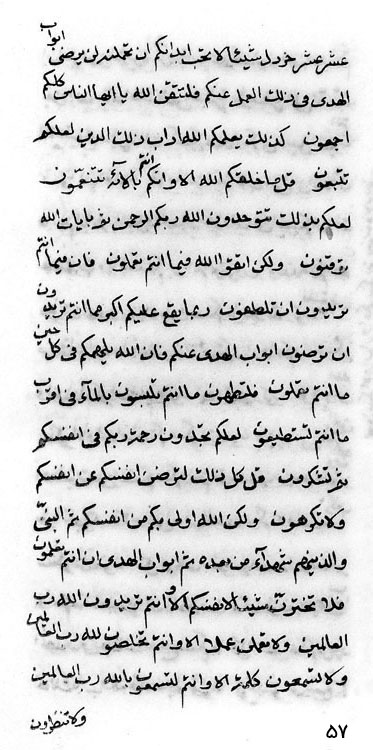 عشر عشر خردل شيئا الا تحب ابدانكم ان تحملن لن يرضى ابواب
الهدى في ذلك العمل عنكم فلتتقن الله يا ايها الناس كلكم
اجمعون كذلك يعلمكم الله اداب ذلك الدين لعلكم
تتبعون قل ما خلقكم الله الا وانكم انتم بالآئه تتنعمون
لعلكم بذلك تتوحدون الله ربكم الرحمن ثم بايات الله
توقنون ولكن اتقوا الله فيما انتم تعملون فان فيما انتم
تريدون ان تلطفون ربما يقع عليكم اكبر مما انتم تريدون
ان ترضون ابواب الهدى عنكم فان الله يلهمكم في كل حين
ما انتم تعملون فلتطهرن ما انتم تلبسون بالمآء في اقرب
ما انتم لتستطيعون لعلكم تجدون رحمة ربكم في انفسكم
ثم لتشكرون قل كل ذلك لترضى انفسكم عن انفسكم
ولا تكرهون ولكن الله اولى بكم من انفسكم ثم النبي
والذينهم شهدآء من بعده ثم ابواب الهدى ان انتم تعلمون
فلا تخترن شيئا لانفسكم الا وانتم تريدون الله رب
العالمين ولا تعملن عملا الا وانتم تخلصون لله رب العالمين
ولا تسمعون كلمة الا وانتم لتسمعون بالله رب العالمين
ولا تنظرون
٥٧